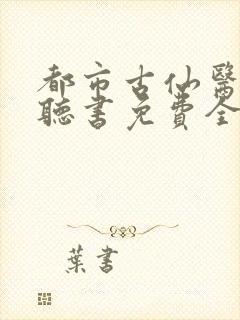 都市古仙醫
聽書免費全
葉書